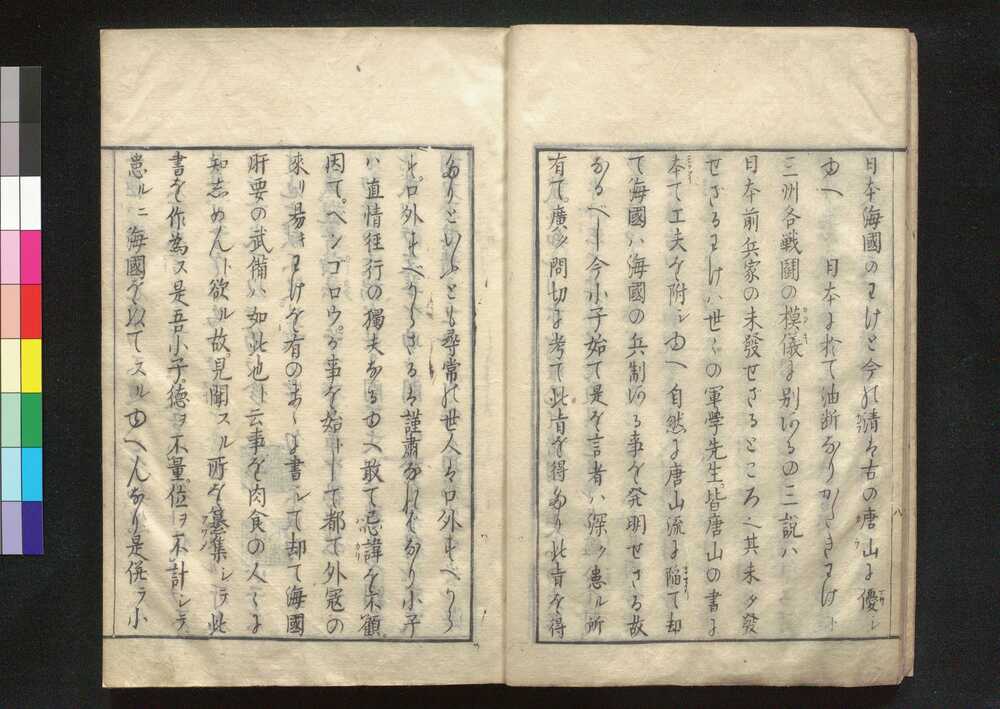 日本海國のわけと今の清は古の唐山に優レ
るゆへ　日本に於て油断なりかたきわけト
三州各戰鬪の模儀に別あるの三説ハ
日本前兵家の未發せざるところ也其未タ發
せざるわけハ世々の軍學先生皆唐山の書に
本て工夫を附シゆへ自然に唐山流に陥て却
て海國ハ海國の兵制ある事を発明せさる故
なるべし今小子始て是を言者ハ深ク患ル所
有て廣ク問切に考て此旨を得たり此旨を得
たりといふとも尋常の世人は口外すべから
す口外すへからさるは謹肅なれはなり小子
ハ直情徑行の獨夫なるゆへ敢て忌諱を不顧
因てヘンゴロウが事を始トして都て外寇の
來リ易キわけを有のまゝに書シて却て海國
肝要の武備ハ如此也ト云事を肉食の人々に
知しめんト欲ル故見聞スル所を纂集シテ此
書を作為ス是吾小子徳ヲ不量位ヲ不計シテ
患ルニ海國を以てスルゆへんなり是併ラ小